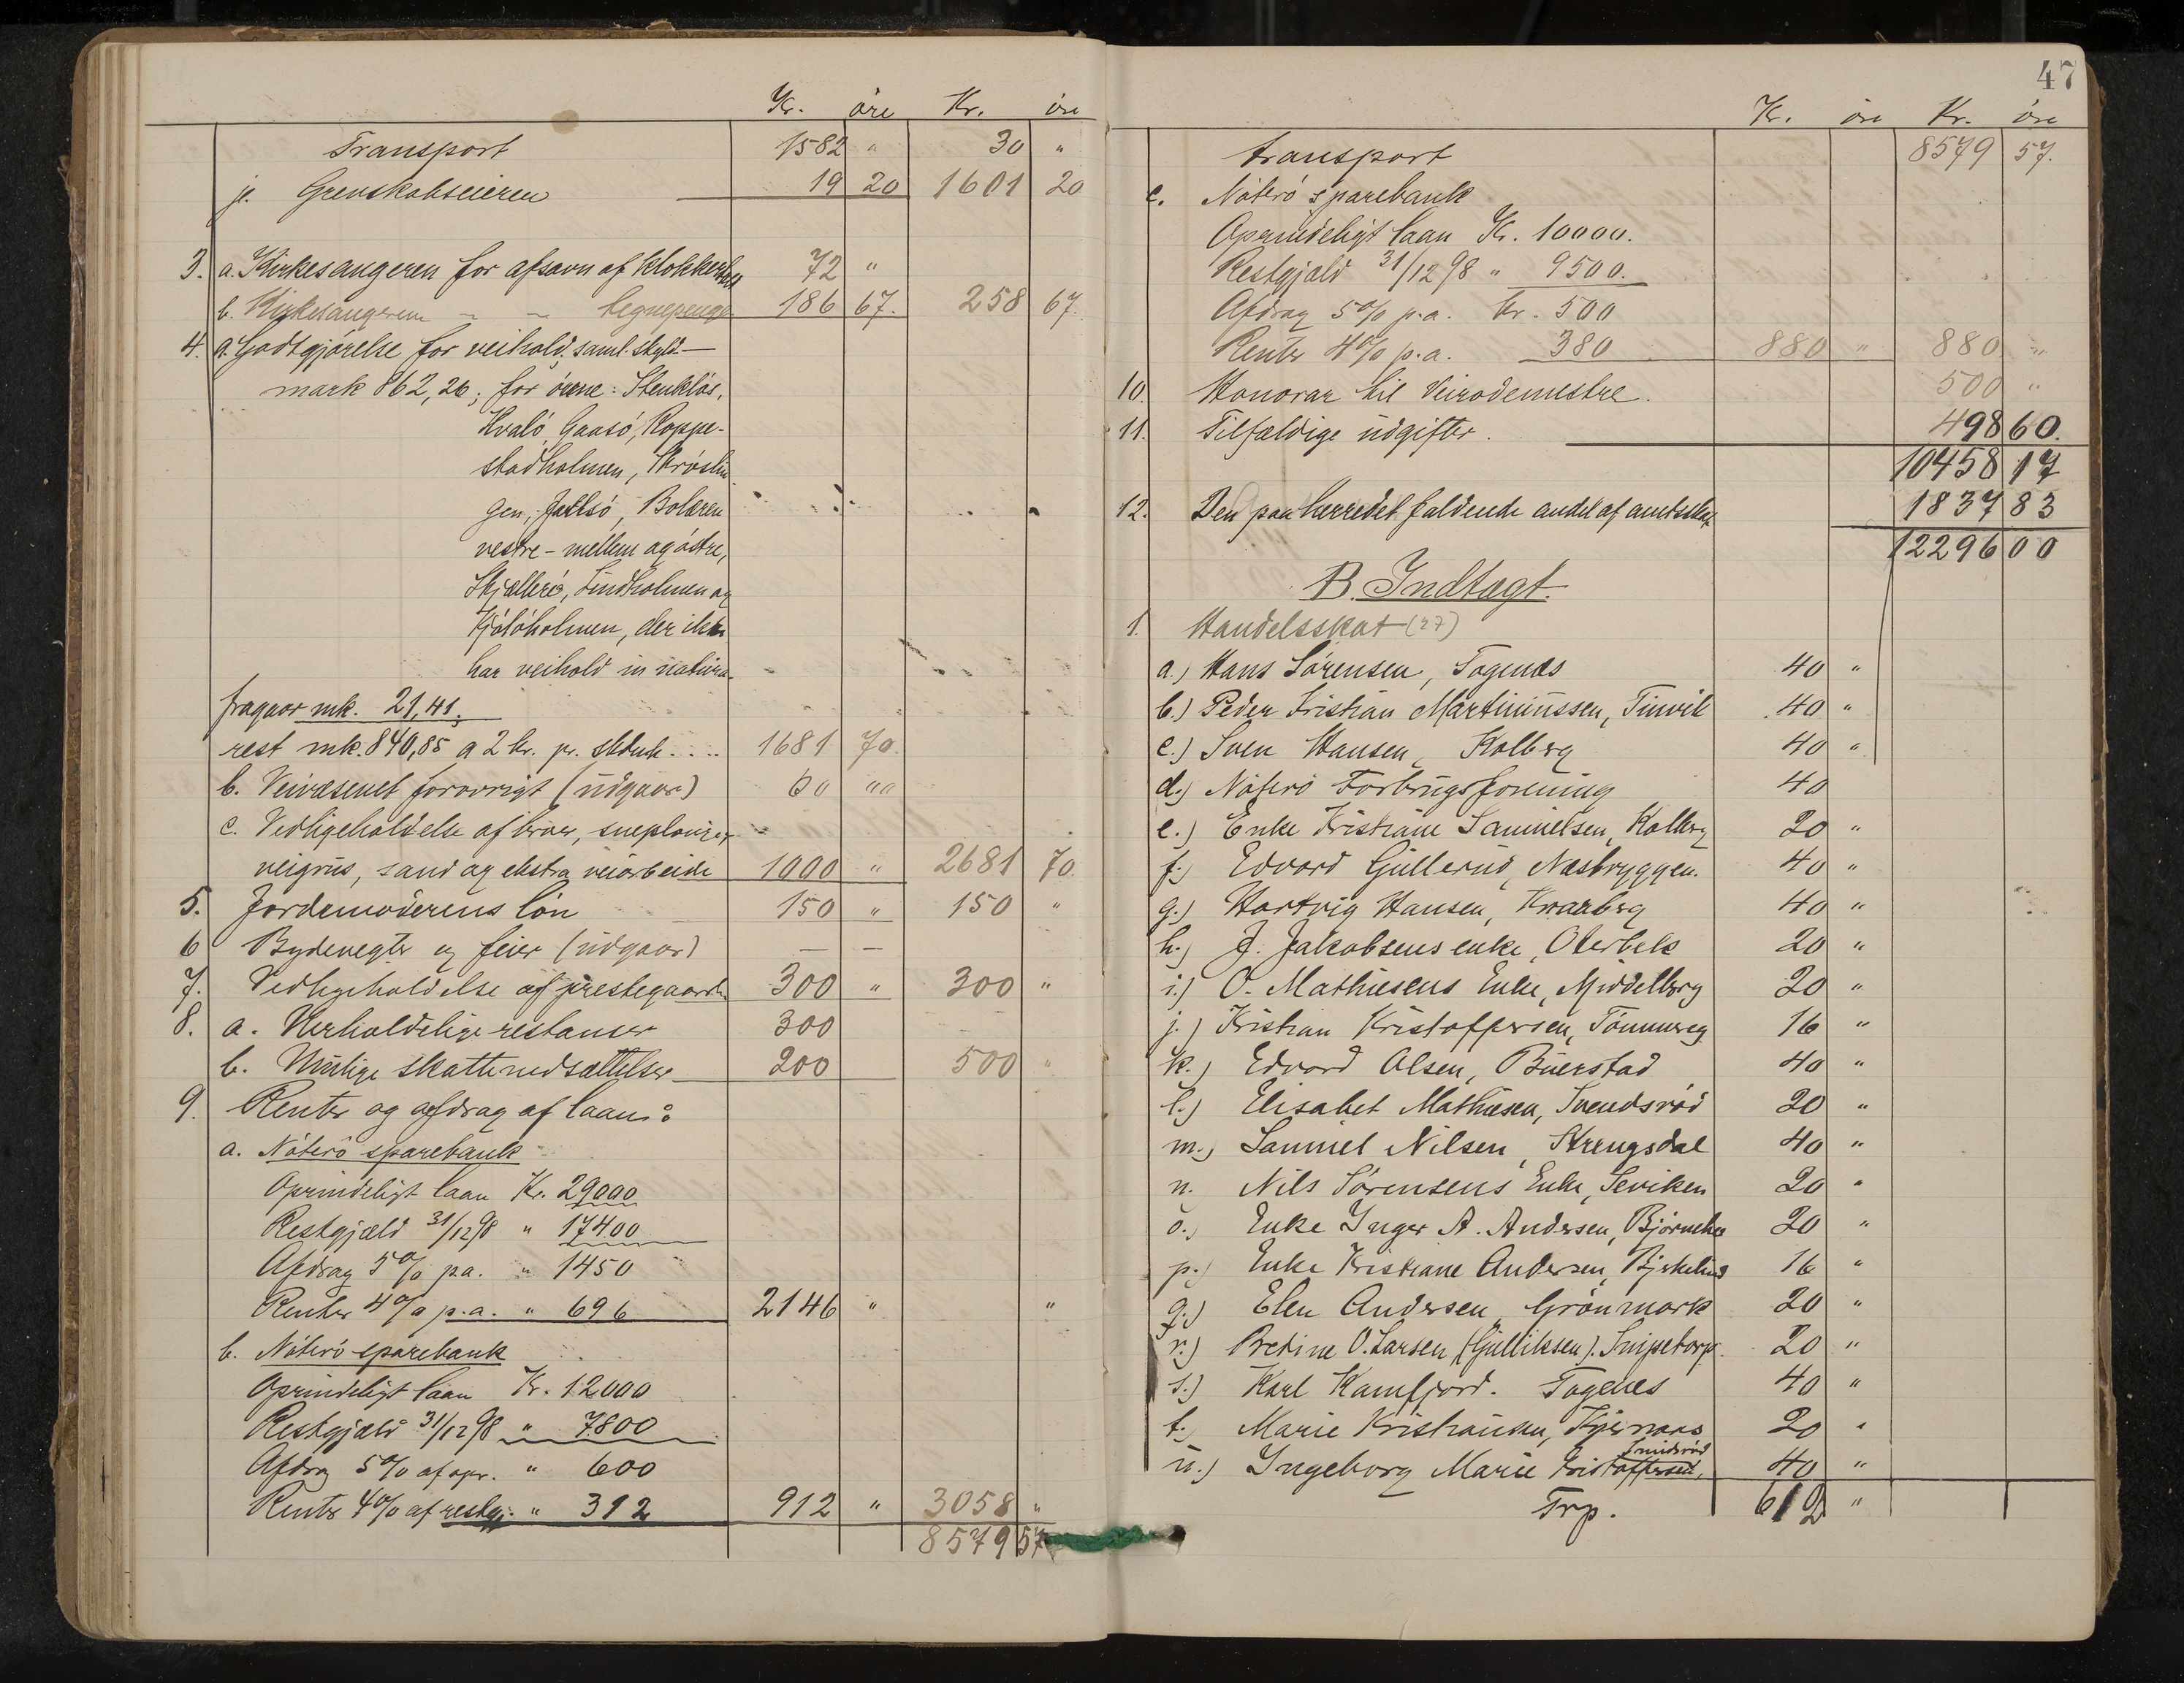 Kr. öre Kr. öre
Transport 1582 " 30 "
jr. Grevskabseieren 19 20 1601 20
3. a. Kirkesangeren for afsavn af klokker 72 "
b. Kirkesangeren " " 186 67. 258 67.
4. a. Godtgjörelse for veihold, saml. skyld-
mark 862,26; for öerne: Stenklös,
Hvalö, Gaasö, Roppe-
stadholmen, Skröslin
gen, Jætlsö, Bolæren
vestre - mellem og östre,
Skjællerö, Lindholmen og
Kjölöholmen, der ikke
har veihold in natura
fragaar mk. 21,41;
rest mk. 840,85 a 2 kr. pr. skmk.... 1681 70.
b. Veivæsenet forövrigt (udgaar) 00 ""
c. Vedligeholdelse af broer, sneplouger
veigrus, sand og ekstra veiarbeide 1000 " 2681 70.
5. Jordemoderens lön 150 " 150 "
6 Bydevegter og feier (udgaar) — —
7. Vedligeholdelse af prestegaarden 300 " 300 "
8. a. Uerholdelige restanser 300
b. Mulige skattenedsættelser 200 500 "
9. Renter og afdrag af laan:
a. Nöterö sparebank
Oprindeligt laan Kr. 29000
Restgjæld 31/12 98 " 17400
Afdrag 5% p.a. " 1450
Renter 4% p.a. " 696 2146 " "
b. Nöterö sparebank
Oprindeligt laan Kr. 12000
Restgjæld 31/12 98 " 7800
Afdrag 5% af opr. " 600
Renter 4% af restgj. " 312 912 " 3058 "
8579 57
47
Kr. öre Kr. öre
transport 8579 57.
c. Nöterö sparebank
Oprindeligt laan Kr. 10000.
Restgjæld 31/12 98 " 9500.
Afdrag 5% p.a. Kr. 500
Renter 4% p.a. 380 880 " 880 "
10. Honorar til Veirodemestre. 500 "
11. Tilfældige udgifter. 498 60.
10458 17
12. Den paa herredet faldende andel af amtsskat 1837 83
12296 00
B. Indtægt.
1. Handelsskat (27)
a.) Hans Sörensen, Togenæs 40 "
b.) Peder Kristian Martiniussen, Tinvik 40 "
c.) Sven Hansen, Kolberg 40 "
d.) Nöterö Forbrugsforening 40
e.) Enke Kristiane Samuelsen, Kolberg 20 "
f.) Edvard Gullerud, Næsbryggen. 40 "
g.) Hartvig Hansen, Knarberg 40 "
h.) J. Jakobsens enke, Oterbek 20 "
i.) O. Mathiesens Enke, Middelborg 20 "
j.) Kristian Kristoffersen, Tömmereg 16 "
k.) Edvard Olsen, Buerstad 40 "
l.) Elisabet Mathiesen, Svendsröd 20 "
m.) Samuel Nilsen, Strengsdal 40 "
n. Nils Sörensens Enke, Seviken 20 "
o.) Enke Inger A. Andersen, Björnebo 20 "
p.) Enke Kristiane Andersen, Bjerkelund 16 "
q.) Elen Andersen, Grönmark 20 "
r.) Bredine O. Larsen (Gulliksen). Snipetorp. 20 "
s.) Karl Kamfjord. Togenes 40 "
t.) Marie Kristiansen, Kjernaas 20 "
Smidsröd
u.) Ingeborg Marie Kristoffersen, 40 "
Trp. 612 "